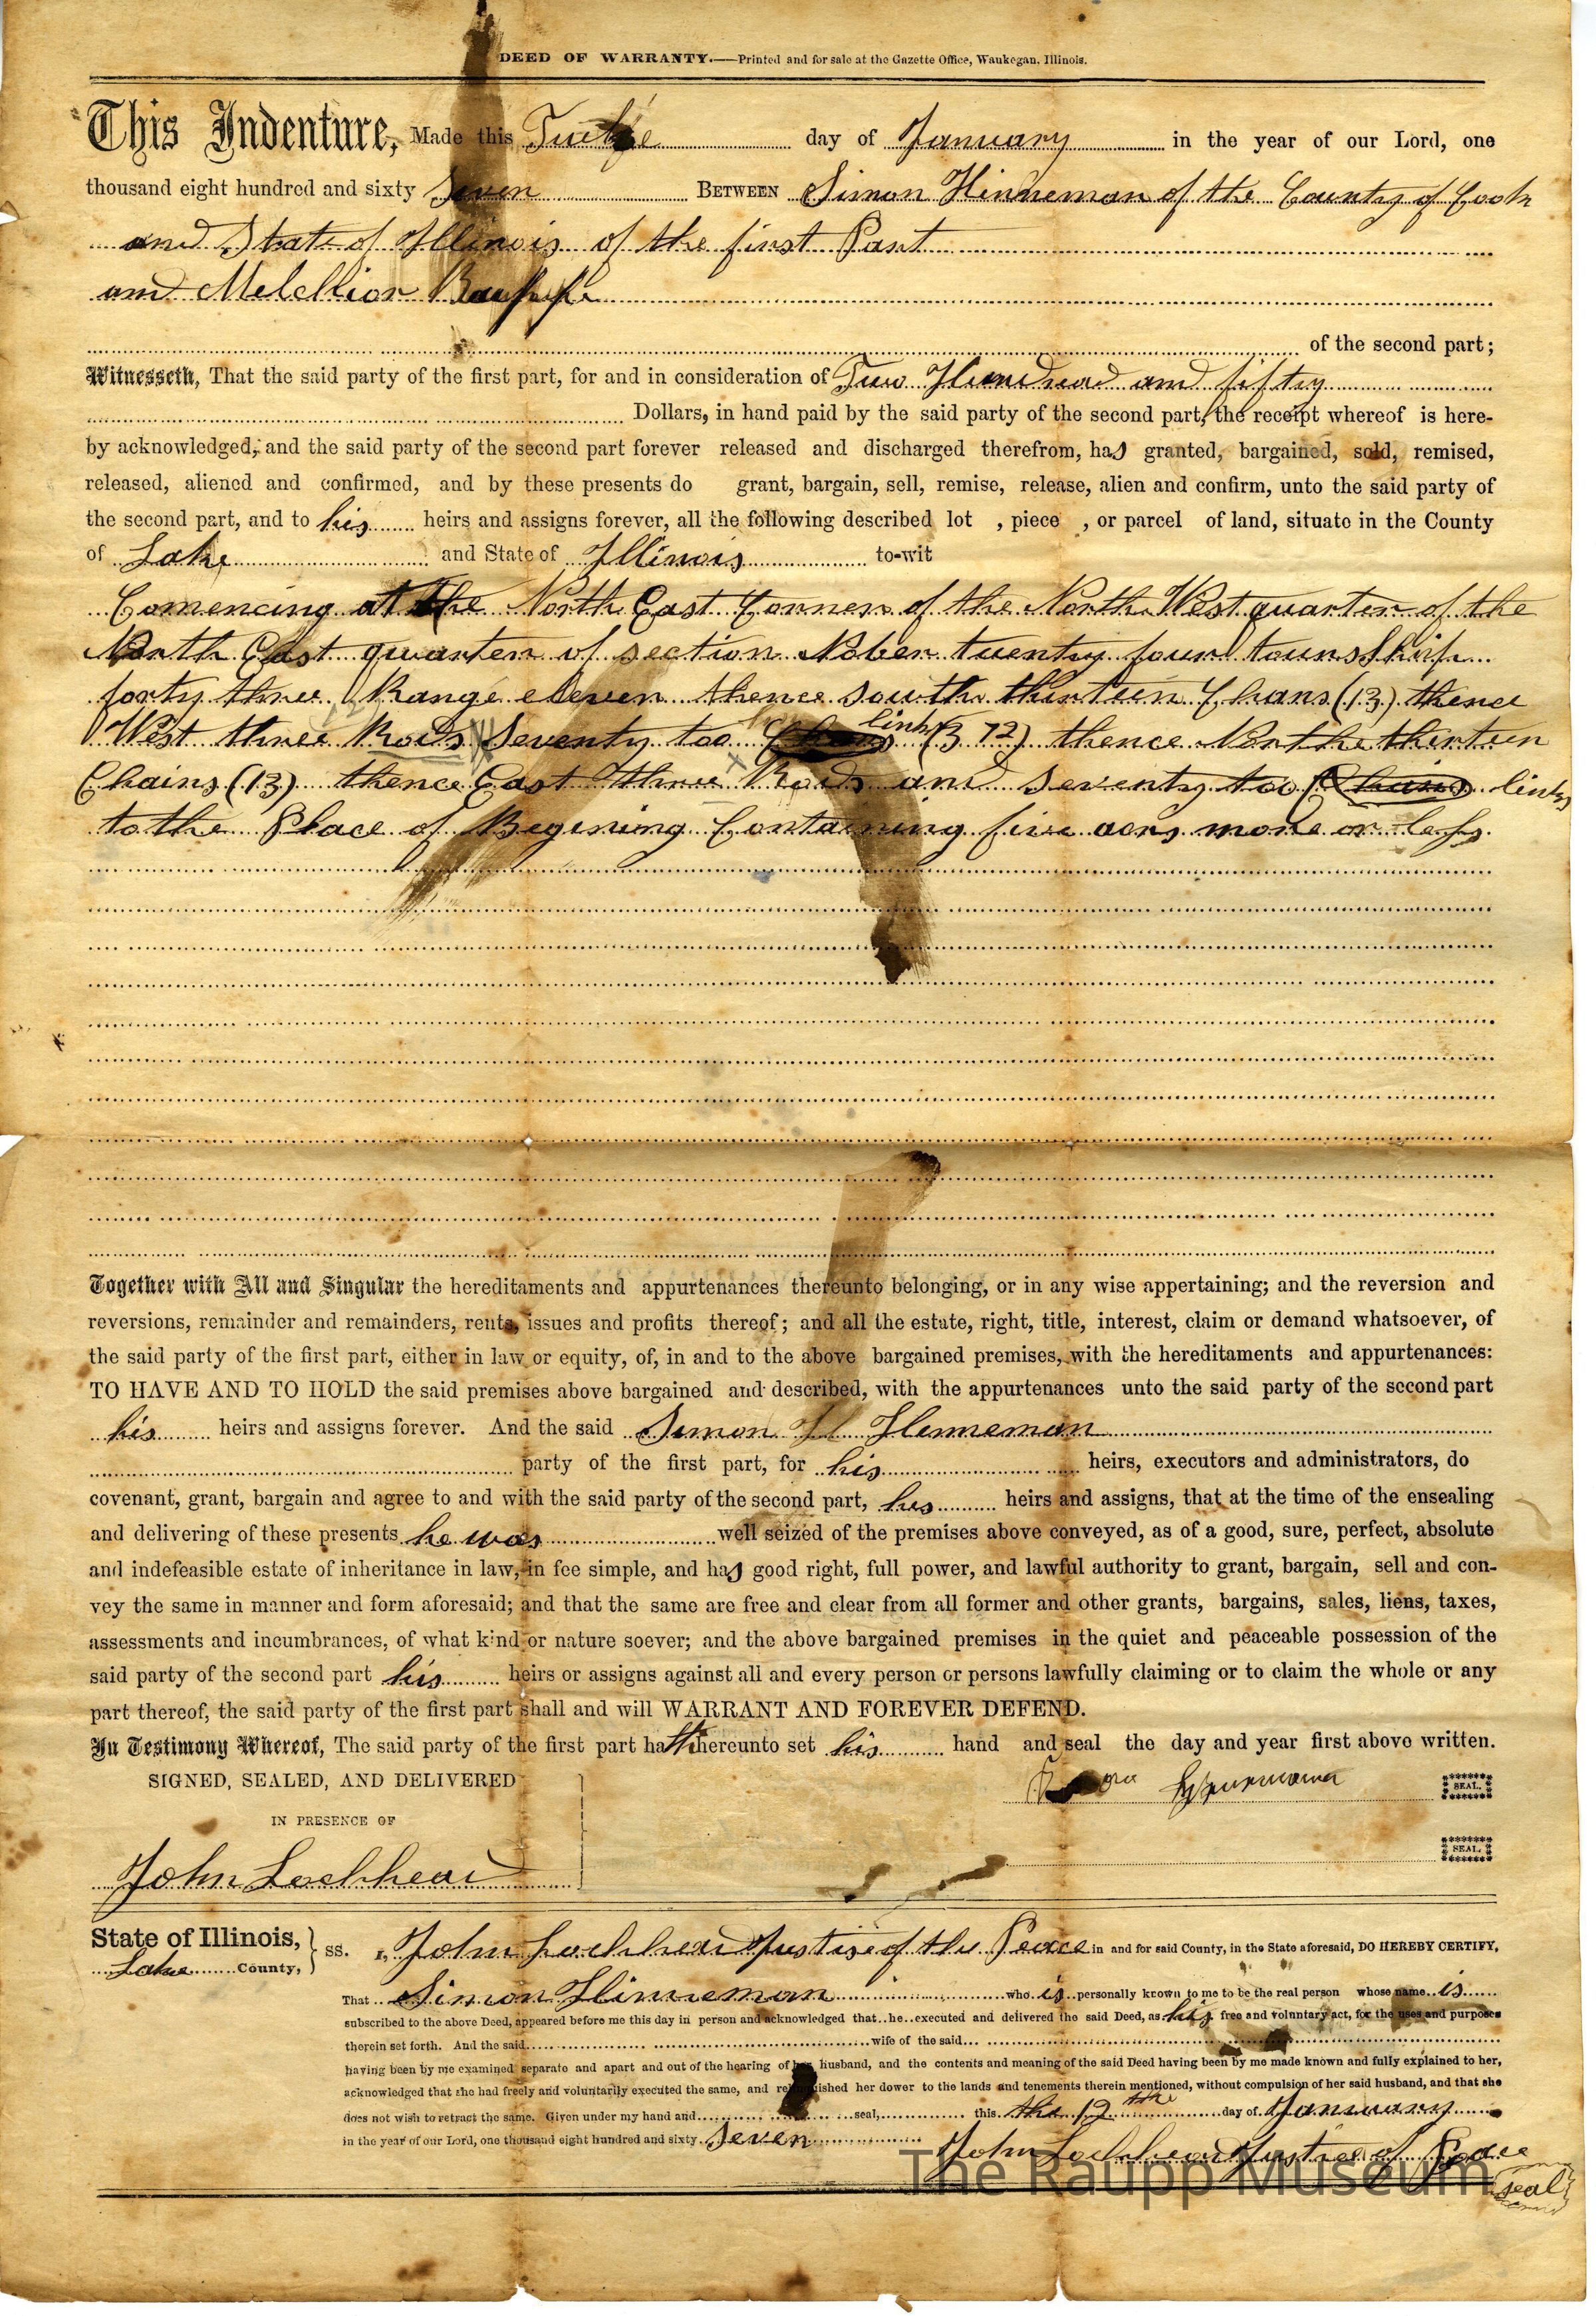 DEED OF WARRANTY.—Printed and for sale at the Gazette Office, Waukegan, Illinois.
This Indenture, Made this Twelve day of January in the year of our Lord, one
thousand eight hundred and sixty Seven BETWEEN Simon Hinneman of the County of Cook
and State of Illinois of the first Part
and Melchior Raupp
of the second part;
Witnesseth, That the said party of the first part, for and in consideration of Two Hundread and fifty
Dollars, in hand paid by the said party of the second part, the receipt whereof is here-
by acknowledged, and the said party of the second part forever released and discharged therefrom, has granted, bargained, sold, remised,
released, aliened and confirmed, and by these presents do grant, bargain, sell, remise, release, alien and confirm, unto the said party of
the second part, and to his heirs and assigns forever, all the following described lot , piece , or parcel of land, situate in the County
of Lake and State of Illinois to-wit
Comencing at the North East Corner of the North West quarter of the
North East quarter of section Nober twenty four townsShip
forty three Range eleven thence south thirteen Chans (13) thence
West three Rods Seventy too links (3 72) thence Northe thirteen
Chains (13) thence East three Rods and seventy too links
to the Place of Begining Containing five acrs more or less
Together with All and Singular the hereditaments and appurtenances thereunto belonging, or in any wise appertaining; and the reversion and
reversions, remainder and remainders, rents, issues and profits thereof; and all the estate, right, title, interest, claim or demand whatsoever, of
the said party of the first part, either in law or equity, of, in and to the above bargained premises, with the hereditaments and appurtenances:
TO HAVE AND TO HOLD the said premises above bargained and described, with the appurtenances unto the said party of the second part
his heirs and assigns forever. And the said Simon H Henneman
party of the first part, for his heirs, executors and administrators, do
covenant, grant, bargain and agree to and with the said party of the second part, his heirs and assigns, that at the time of the ensealing
and delivering of these presents he was well seized of the premises above conveyed, as of a good, sure, perfect, absolute
and indefeasible estate of inheritance in law, in fee simple, and has good right, full power, and lawful authority to grant, bargain, sell and con-
vey the same in manner and form aforesaid; and that the same are free and clear from all former and other grants, bargains, sales, liens, taxes,
assessments and incumbrances, of what kind or nature soever; and the above bargained premises in the quiet and peaceable possession of the
said party of the second part his heirs or assigns against all and every person or persons lawfully claiming or to claim the whole or any
part thereof, the said party of the first part shall and will WARRANT AND FOREVER DEFEND.
In Testimony Whereof, The said party of the first part hath hereunto set his hand and seal the day and year first above written.
SIGNED, SEALED, AND DELIVERED
SEAL.
IN PRESENCE OF
SEAL.
John Lochhead
State of Illinois, Lake County, } ss. I, John Lochhead Justise of the Peace in and for said County, in the State aforesaid, DO HEREBY CERTIFY,
That Simon Hinneman who is personally known to me to be the real person whose name is
subscribed to the above Deed, appeared before me this day in person and acknowledged that he executed and delivered the said Deed, as his free and voluntary act, for the uses and purposes
therein set forth. And the said wife of the said
having been by me examined separate and apart and out of the hearing of her husband, and the contents and meaning of the said Deed having been by me made known and fully explained to her,
acknowledged that she had freely and voluntarily executed the same, and relinquished her dower to the lands and tenements therein mentioned, without compulsion of her said husband, and that she
does not wish to retract the same. Given under my hand and seal, this the 12th day of January
in the year of our Lord, one thousand eight hundred and sixty seven
John Lochhead Justice of Peace
seal
The Raupp Museum